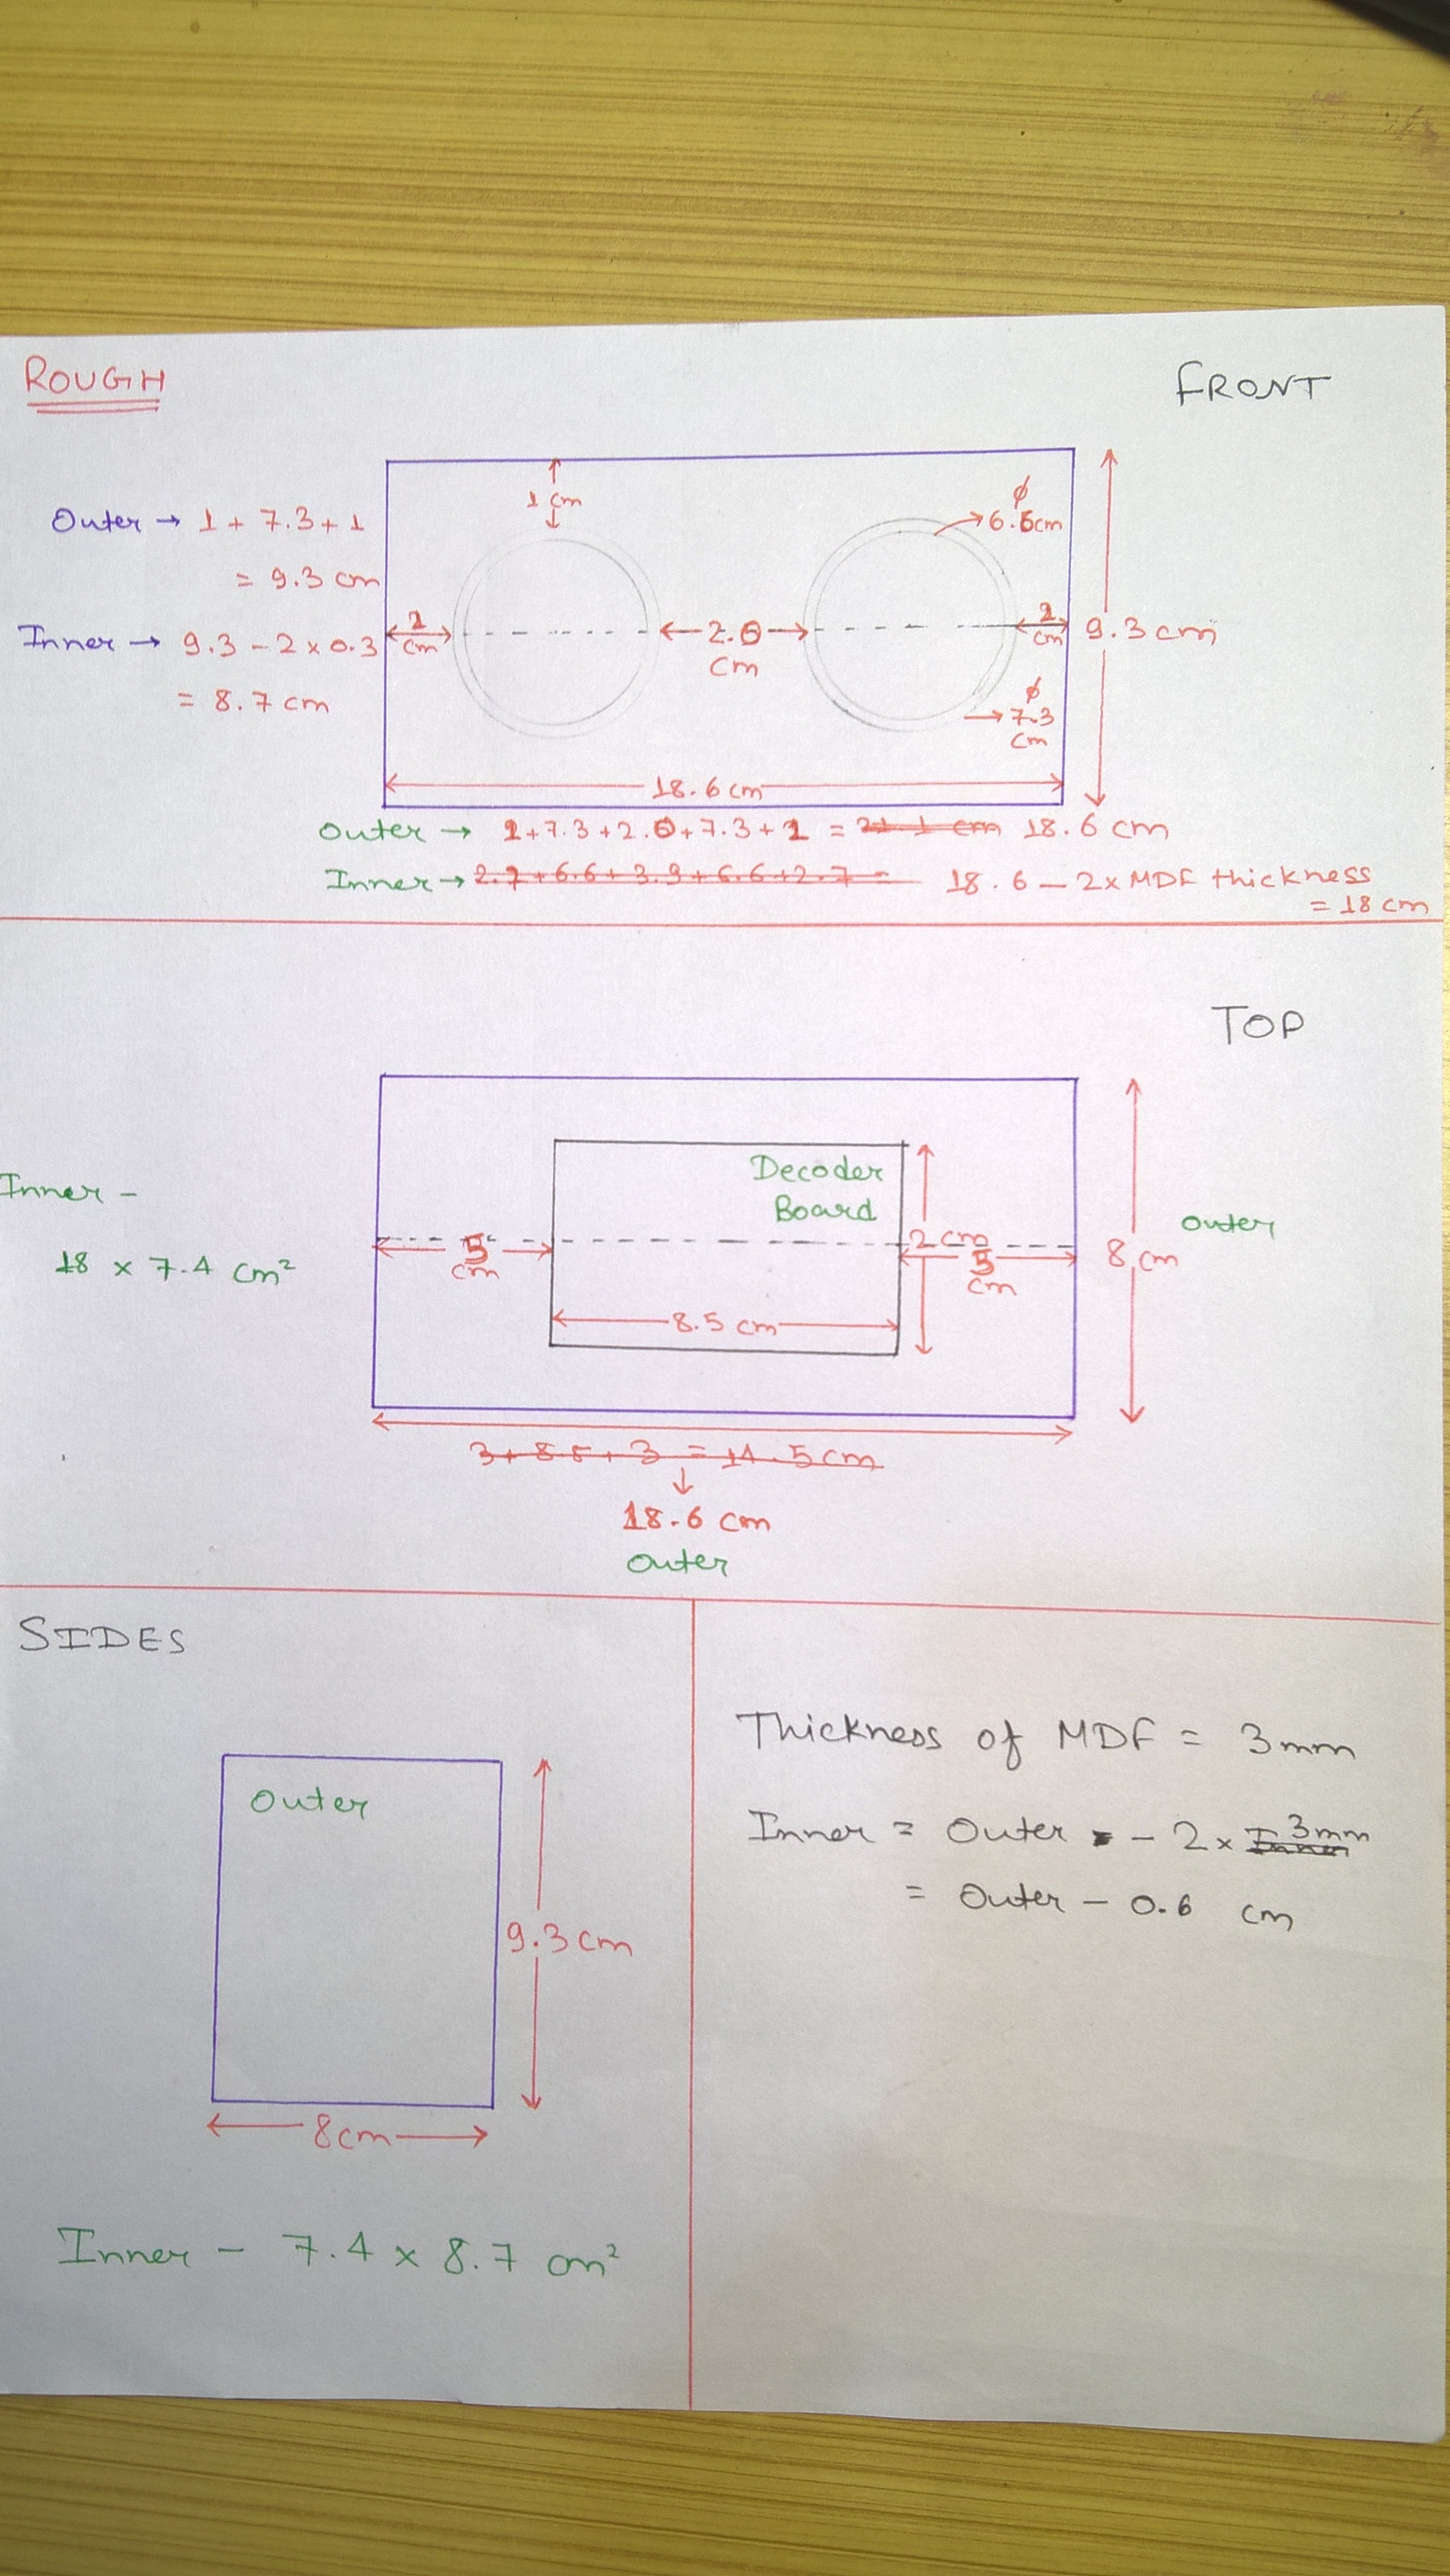 ROUGH
FRONT
1 cm
ϕ
6.6cm
Outer → 1 + 7.3 + 1
= 9.3 cm
Inner → 9.3 - 2 x 0.3
= 8.7 cm
1
cm
2.0
cm
1
cm
9.3 cm
ϕ
7.3
cm
18.6 cm
Outer → 1+7.3+2.0+7.3+1 = 21.1 cm 18.6 cm
Inner → 2.7+6.6+3.9+6.6+2.7 = 18.6 - 2x MDF thickness
= 18 cm
TOP
Decoder
Board
Inner -
18 x 7.4 cm²
5
cm
2 cm
5
cm
outer
8 cm
8.5 cm
3 + 8.5 + 3 = 14.5 cm
↓
18.6 cm
outer
SIDES
Outer
9.3 cm
8cm
Inner - 7.4 x 8.7 cm²
Thickness of MDF = 3mm
Inner = Outer - 2 x Inner 3mm
= Outer - 0.6 cm